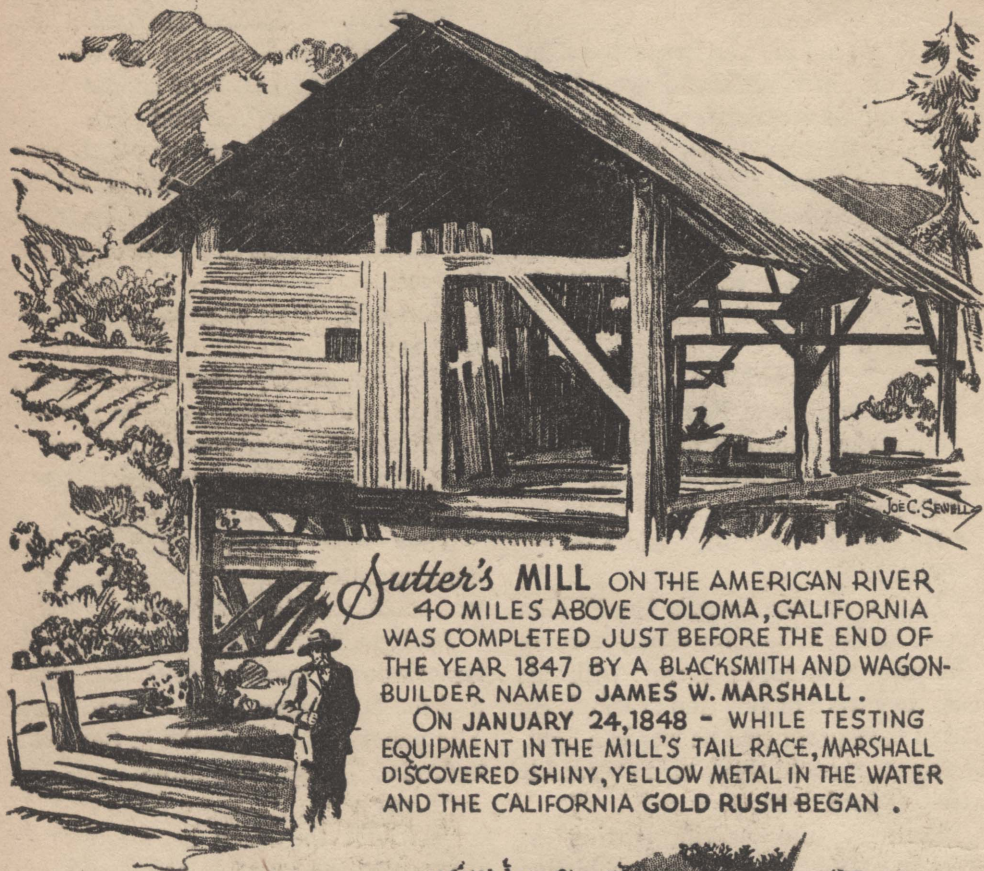 JOE C. SEWELL
Sutter's MILL ON THE AMERICAN RIVER
40 MILES ABOVE COLOMA, CALIFORNIA
WAS COMPLETED JUST BEFORE THE END OF
THE YEAR 1847 BY A BLACKSMITH AND WAGON-
BUILDER NAMED JAMES W. MARSHALL.
ON JANUARY 24, 1848 - WHILE TESTING
EQUIPMENT IN THE MILL'S TAIL RACE, MARSHALL
DISCOVERED SHINY, YELLOW METAL IN THE WATER
AND THE CALIFORNIA GOLD RUSH BEGAN.